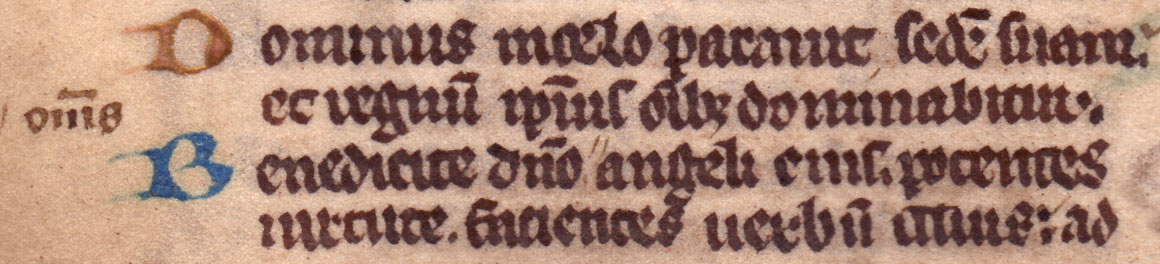 Dominus incelo parauit sedē suam.
om̄s
et regnū ip̄ius om̄ibꝫ dominabitur:.
Benedicite dn̄o " angeli eius. potentes
uirtute. facientes uerbū illius: ad